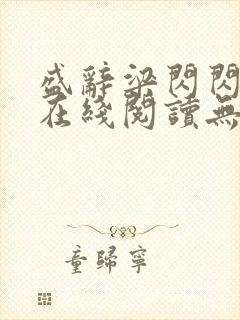 盛辭梁閃閃
在綫閱讀無
童歸寧